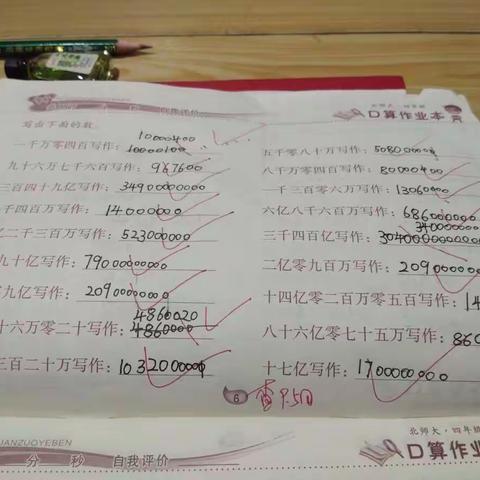 北师大·四年级
口算作业本
写出下面的数。
10000400
一千万零四百写作：10000100
五千零八十万写作：50800000
九十六万七千六百写作：967600
八千万零四百写作：80000400
三百四十九亿写作：34900000000
一千三百零六万写作：13060000
千四百万写作：14000000
六亿八千六百万写作：686000000
亿二千三百万写作：523000000
340000000000
三千四百亿写作：
九十亿写作：
二亿零九百万写作：209000000
零九亿写作：
十四亿零二百万零五百写作：14
4860020
十六万零二十写作：4860000
八十六亿零七十五万写作：860
三百二十万写作：
十七亿写作：
6
北师大·四年级
UANZUOYEBEN
分 秒 自我评价
口算作业